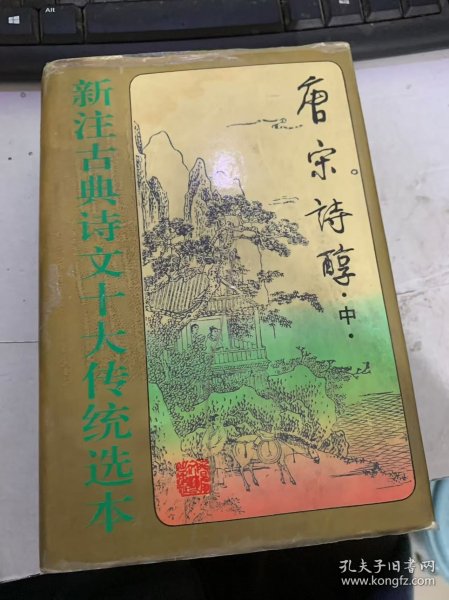 Alt
新注古典诗文十大传统选本
唐宋诗醇·中·
孔夫子旧书网
www.kongfz.com